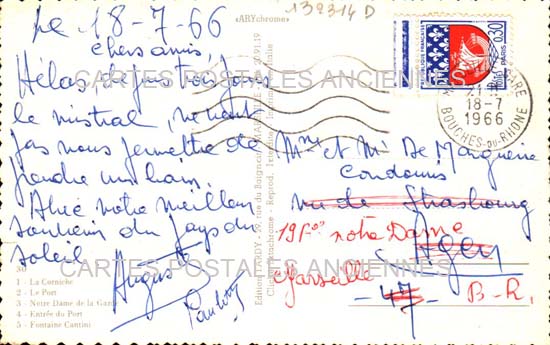 «ARYchrome»
132314 D
Le 18-7-66
chers amis,
Hélas depuis trois jours
le mistral, ne veut
pas nous permettre de
prendre un bain.
Avec notre meilleur
souvenir du pays du
soleil
Auguste
Paulette
30
1 - La Corniche
2 - Le Port
3 - Notre Dame de la Garde
4 - Entrée du Port
5 - Fontaine Cantini
Edition ARDY - 29, rue du Buignscort
Clichés Arychrome - Reprod. Interdite
RÉPUBLIQUE FRANÇAISE
0,30
PARIS
GARE
18-7
1966
BOUCHES-DU-RHÔNE
Mme et Mr De
Condoms
rue de Strasbourg
191 Bd notre Dame
Agen
Marseille
-47-
B-R.
CARTES POSTALES ANCIENNES
CARTES POSTALES ANCIENNES